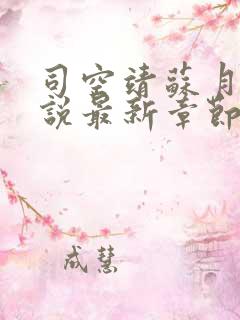 司空靖蘇月
說最新章節
成慧